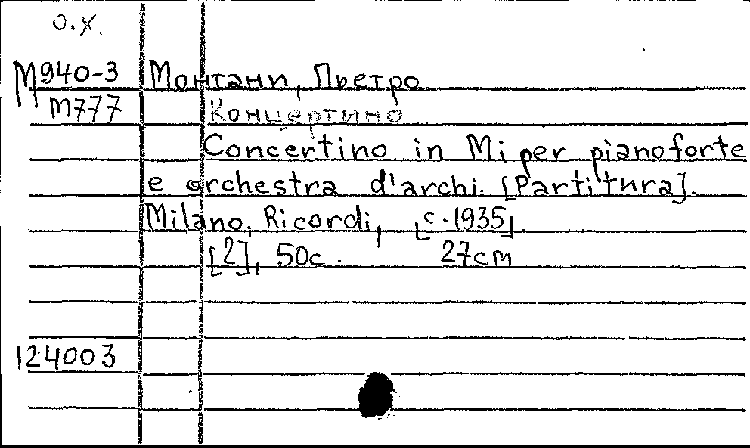 о.х.
М940-3 Монтани, Пьетро
М777 Концертино
Concertino in Mi per pianoforte
e orchestra d'archi. [Partitura].
Milano, Ricordi, [c.1935].
[2], 50c. 27cm
124003